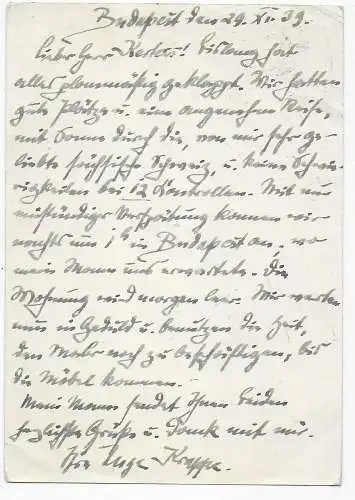 Budapest den 29. XI. 39.
Lieber Herr Kertes! Bislang hat
alles planmäßig geklappt. Wir hatten
gute Plätze u. eine angenehme Reise,
mit Sonne durch die, von mir sehr ge-
liebte sächsische Schweiz, u. keine Schwie-
rigkeiten bei 12 Kontrollen. Mit nur
einstündiger Verspätung kamen wir
nachts um 1h in Budapest an, wo
mein Mann uns erwartete. Die
Wohnung wird morgen leer. Wir warten
nun in Geduld u. benutzen die Zeit,
den Maler noch zu beschäftigen, bis
die Möbel kommen.
Mein Mann sendet Ihnen beiden
herzlichste Grüße u. Dank mit mir.
Ihre Inge